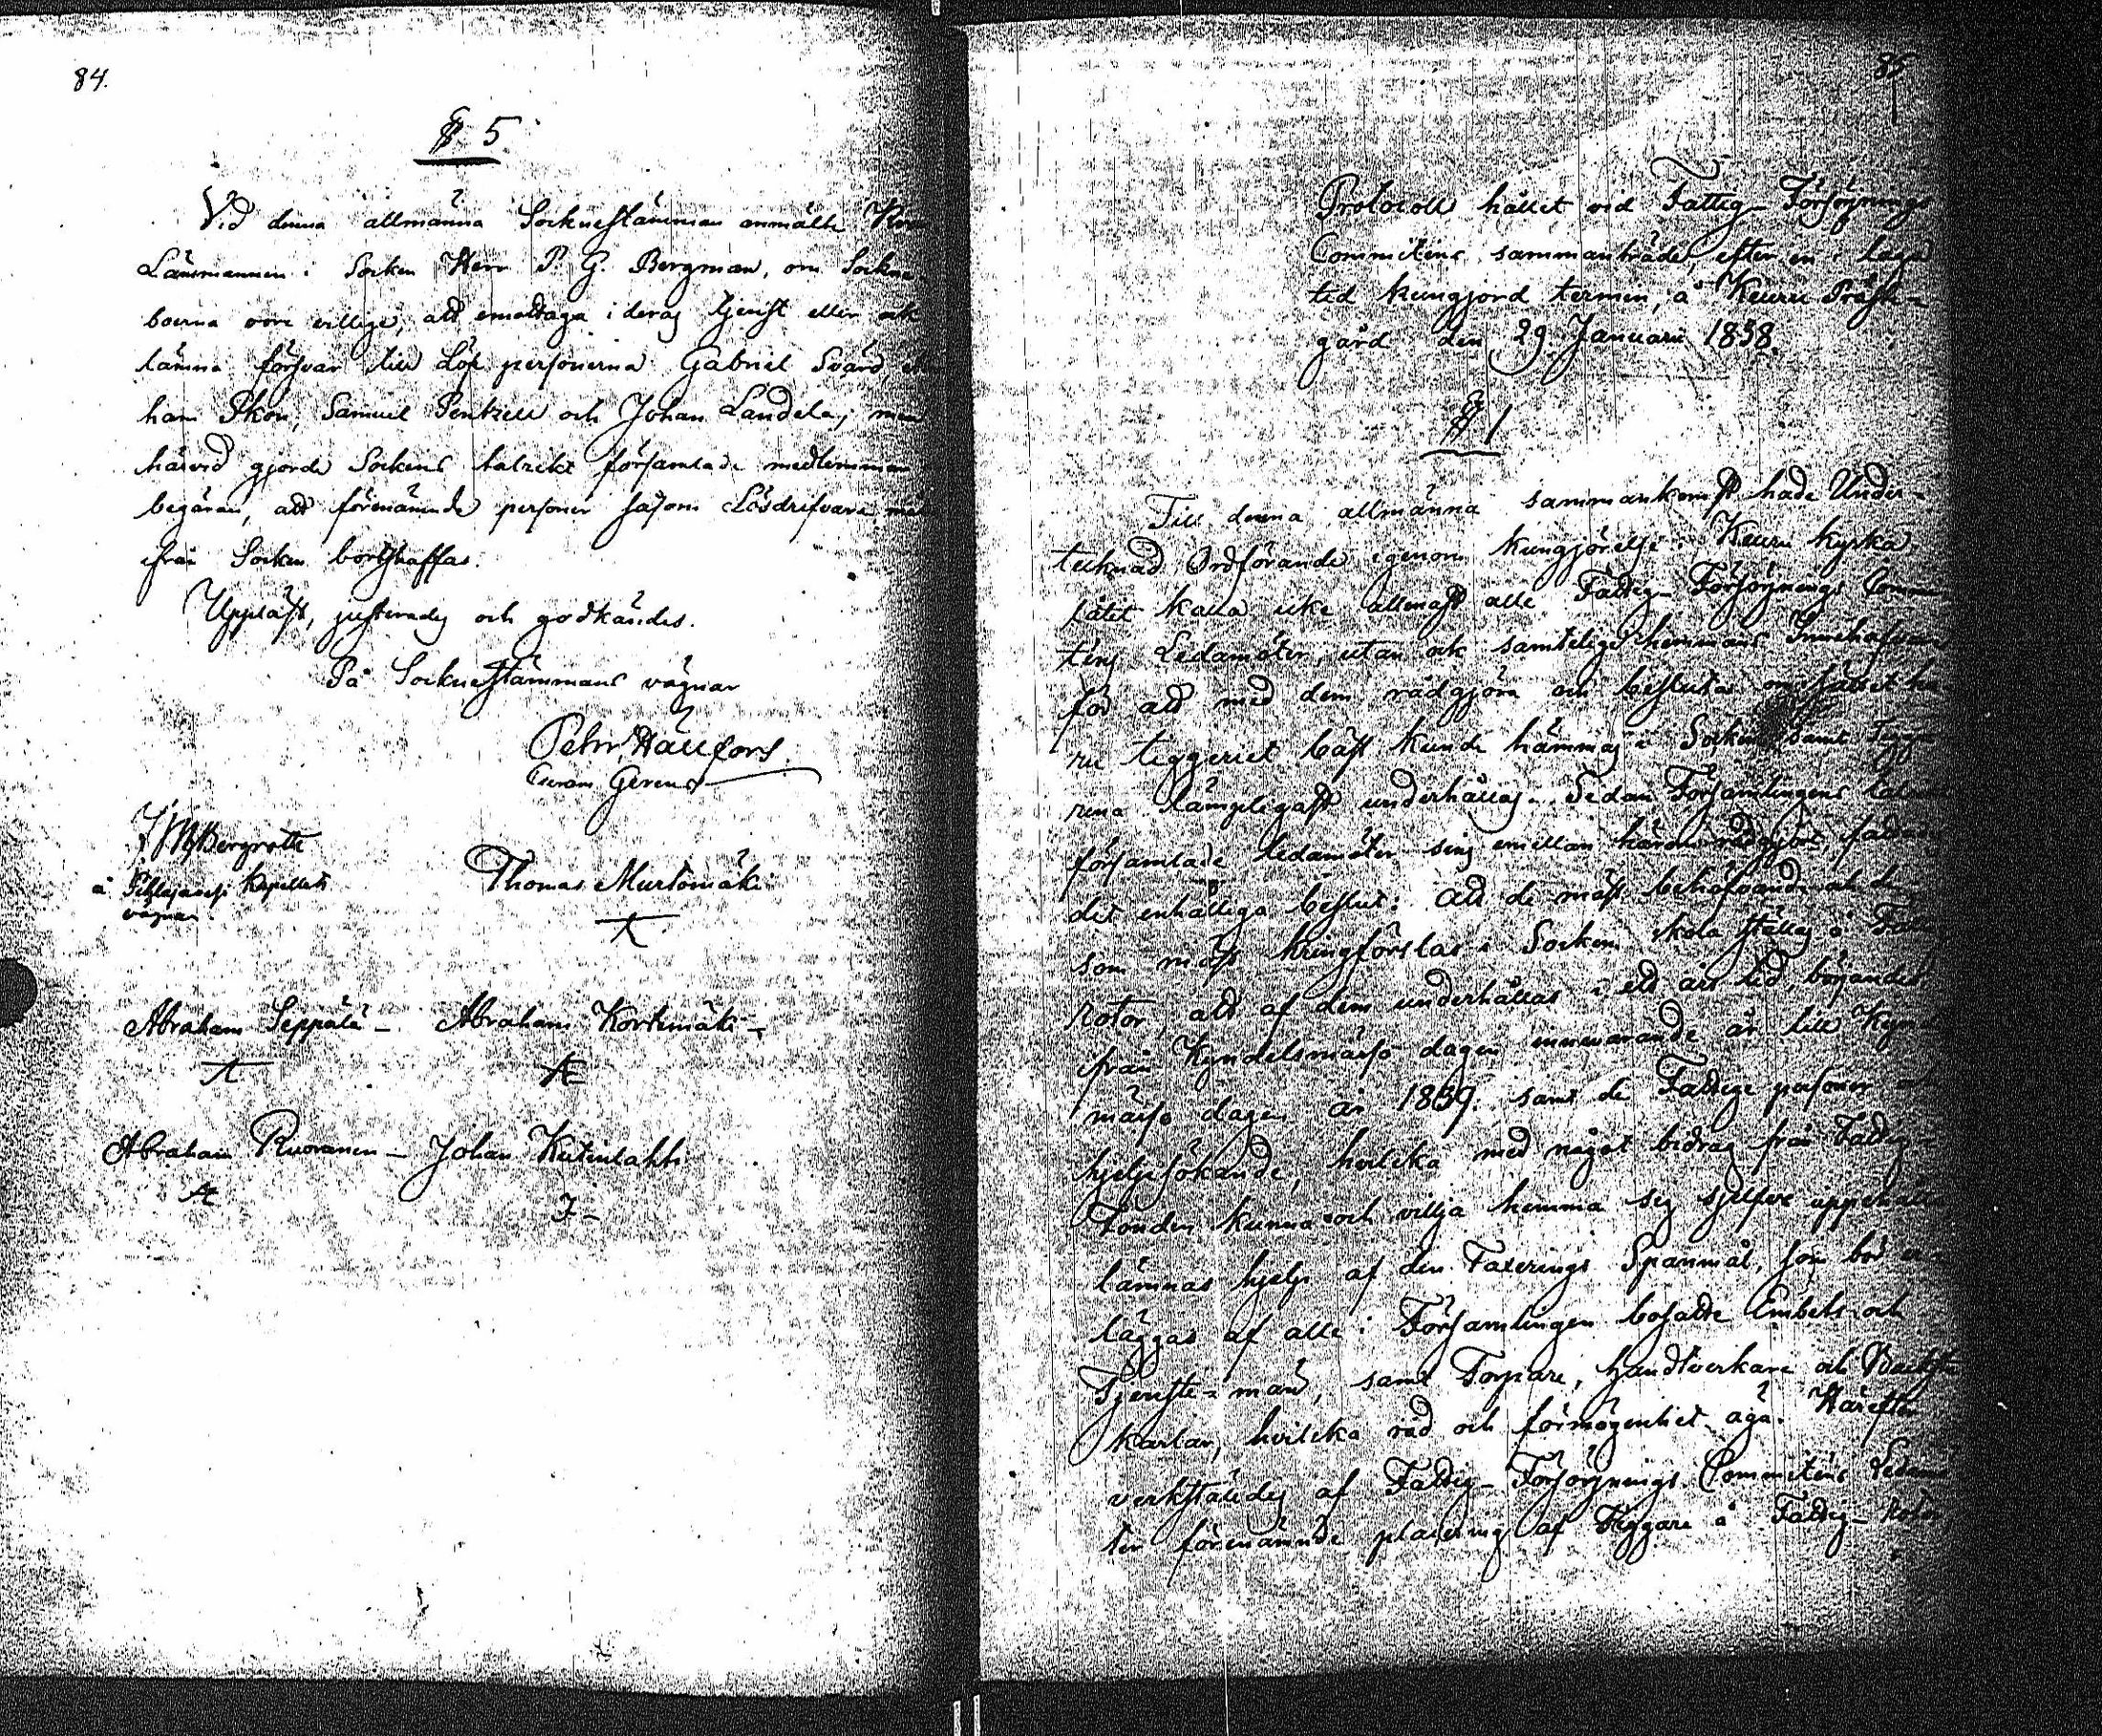 84.
§ 5.
Vid denna allmänna Socknestämman anmälte
Länsmannen i Socken Herr P. G. Bergman, om Sockne
boerna vore villige, att emottaga i deras tjenst eller och
lämna försvar till Lösa personerna Gabriel Svärd,
ham Skou, Samuel Pentzell och Johan Landela; men
härvid gjorde Sockens talrikt församlade medlemmar
begäran, att förenämnde personer såsom Lösdrifvare
ifrån Socken bortskaffas.
Uppläst, justerades och godkändes.
På Sockne Stämmans vägnar
Petr. Hällfors
Curam Gerens
Bergroth
å Pihlajavesi Kapellets
vägnar
Thomas Murtomäki
Abraham Seppälä – Abraham Kortemäki –
Abraham Ruoranen – Johan Kutinlahti
85
Protocoll hållet vid Fattig-Försörjnings
Committéens sammanträde, efter en i laga
tid kungjord termin, å Keuru Präste-
gård den 29 Januarii 1838.
§ 1
Till denna allmänna sammankomst hade Under-
tecknad Ordförande igenom kungjörelse i Keuru kyrka
låtit kalla icke allenast alle Fattig-Försörjnings Commi
téns Ledamöter, utan ock samtelige hemmans Innehafvare
för att med dem rådgjöra och besluta om sättet hu
ru tiggeriet bäst kunde hämmas i Socken samt Tigga
rena lämpeligast underhållas. Sedan Församlingens talrikt
församlade ledamöter sins emillan härom rådgjort, fattades
det enhälliga beslut: att de mäst behöfvande och de
som måst kringförslas i Socken skola ställas å Fattig
rotor, att af dem underhållas i ett års tid, börjandes
från Kyndelsmässo dagen innevarande år till Kyndels
mässo dagen år 1839. samt de Fattige personer och
hjelpsökande, hvilcka med något bidrag från Fattig-
Fonden kunna och vilja hemma sig sjelfve uppehålla
lämnas hjelp af den Taxerings Spannmål, som bör er-
läggas af alle i Församlingen bosatte Embets och
Tjenste-män, samt Torpare, Handtverkare och Backstu
karlar, hvilcka råd och förmögenhet äga. Härefter
verkstäldes af Fattig-Försörjnings Committéns Ledamö
ter förenämnde placering af Tiggare å Fattig-Rotor